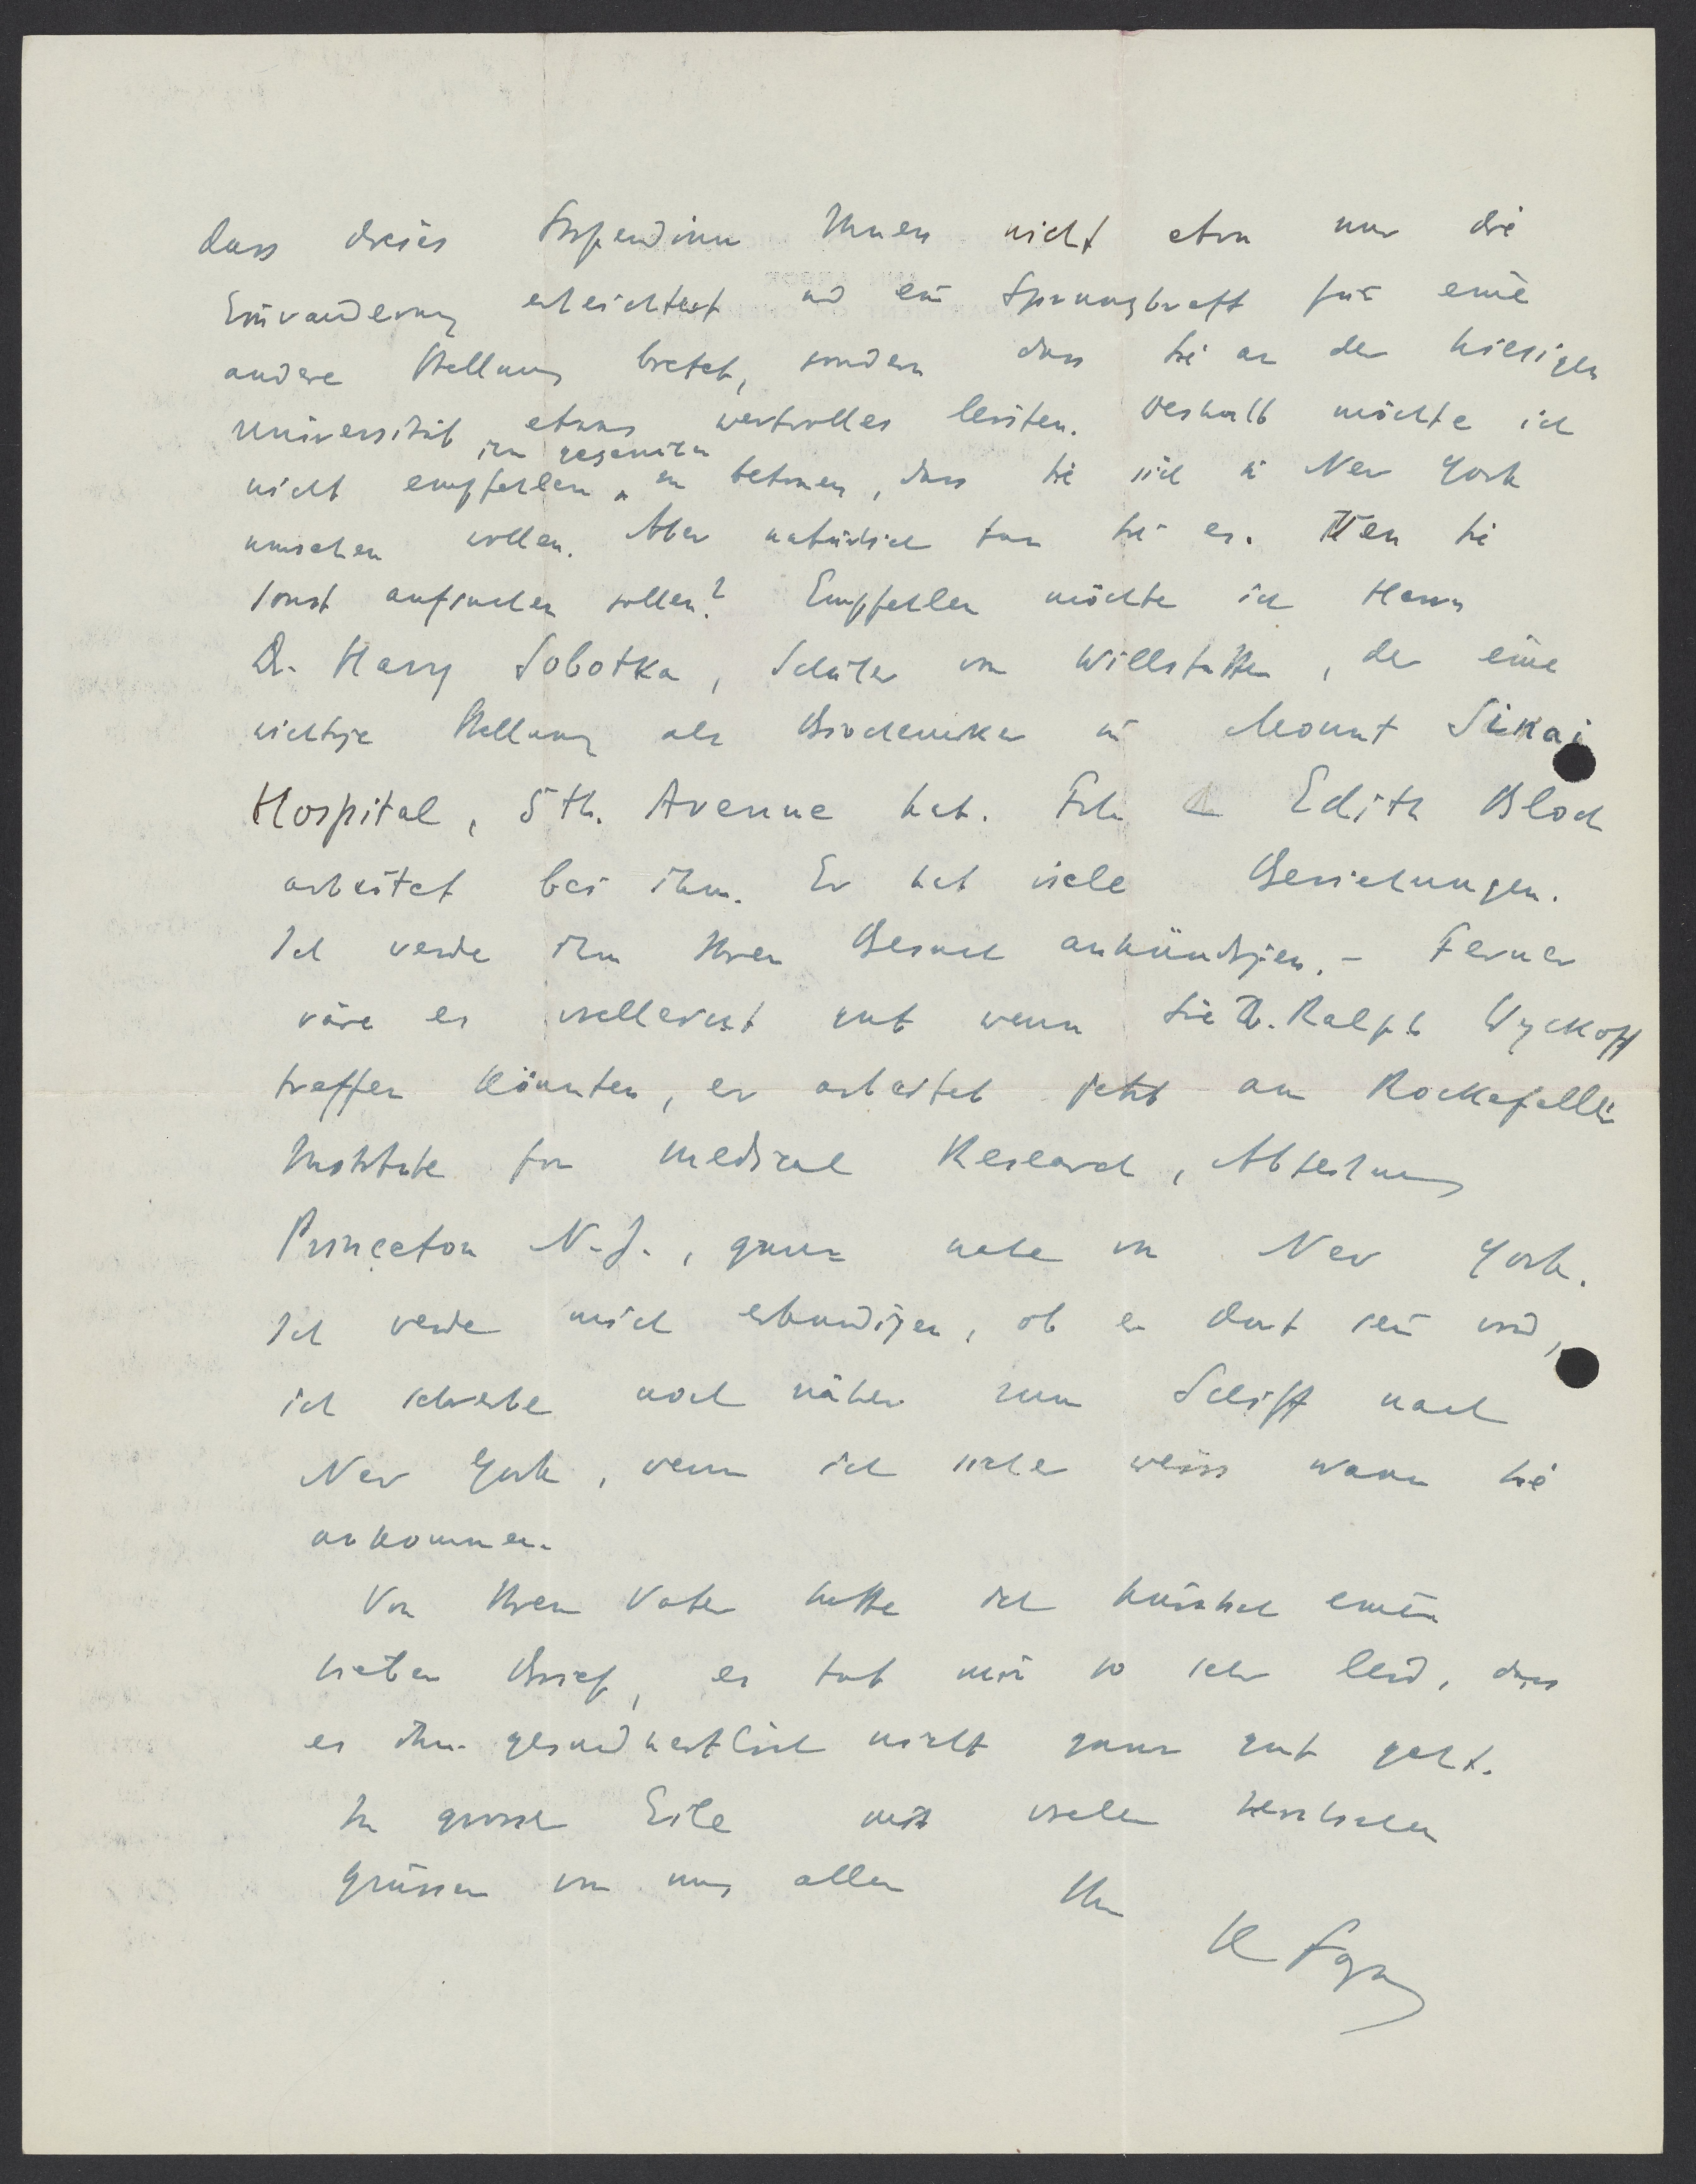 dass dieses Stipendium Ihnen nicht etwa nur die
Einwanderung erleichtert und ein Sprungbrett für eine
andere Stellung bietet, sondern dass Sie an der hiesigen
Universität etwas wertvolles leisten. Deshalb möchte ich
ihm gegenüber
nicht empfehlen zu betonen, dass Sie sich in New York
umsehen wollen. Aber natürlich tun Sie es. Wen Sie
sonst aufsuchen sollen? Empfehlen möchte ich Herrn
Dr. Harry Sobotka, Schüler von Willstätter, der eine
wichtige Stellung als Biochemiker in Mount Sinai
Hospital, 5th. Avenue hat. Frl. Edith Bloch
arbeitet bei ihm. Er hat viele Beziehungen.
Ich werde ihm Ihren Besuch ankündigen. - Ferner
wäre es vielleicht gut wenn Sie Dr. Ralph Wyckoff
treffen könnten, er arbeitet jetzt am Rockefeller
Institute for medical Research, Abteilung
Princeton N.J., ganz nahe von New York.
Ich werde mich erkundigen, ob er dort sein wird,
ich schreibe noch näher zum Schiff nach
New York, wenn ich sicher weiss wann Sie
ankommen.
Von Ihrem Vater hatte ich kürzlich einen
lieben Brief, es tut mir so sehr leid, dass
es ihm gesundheitlich nicht ganz gut geht.
In grosser Eile mit vielen herzlichen
Grüssen von uns allen Ihr
K Fajans